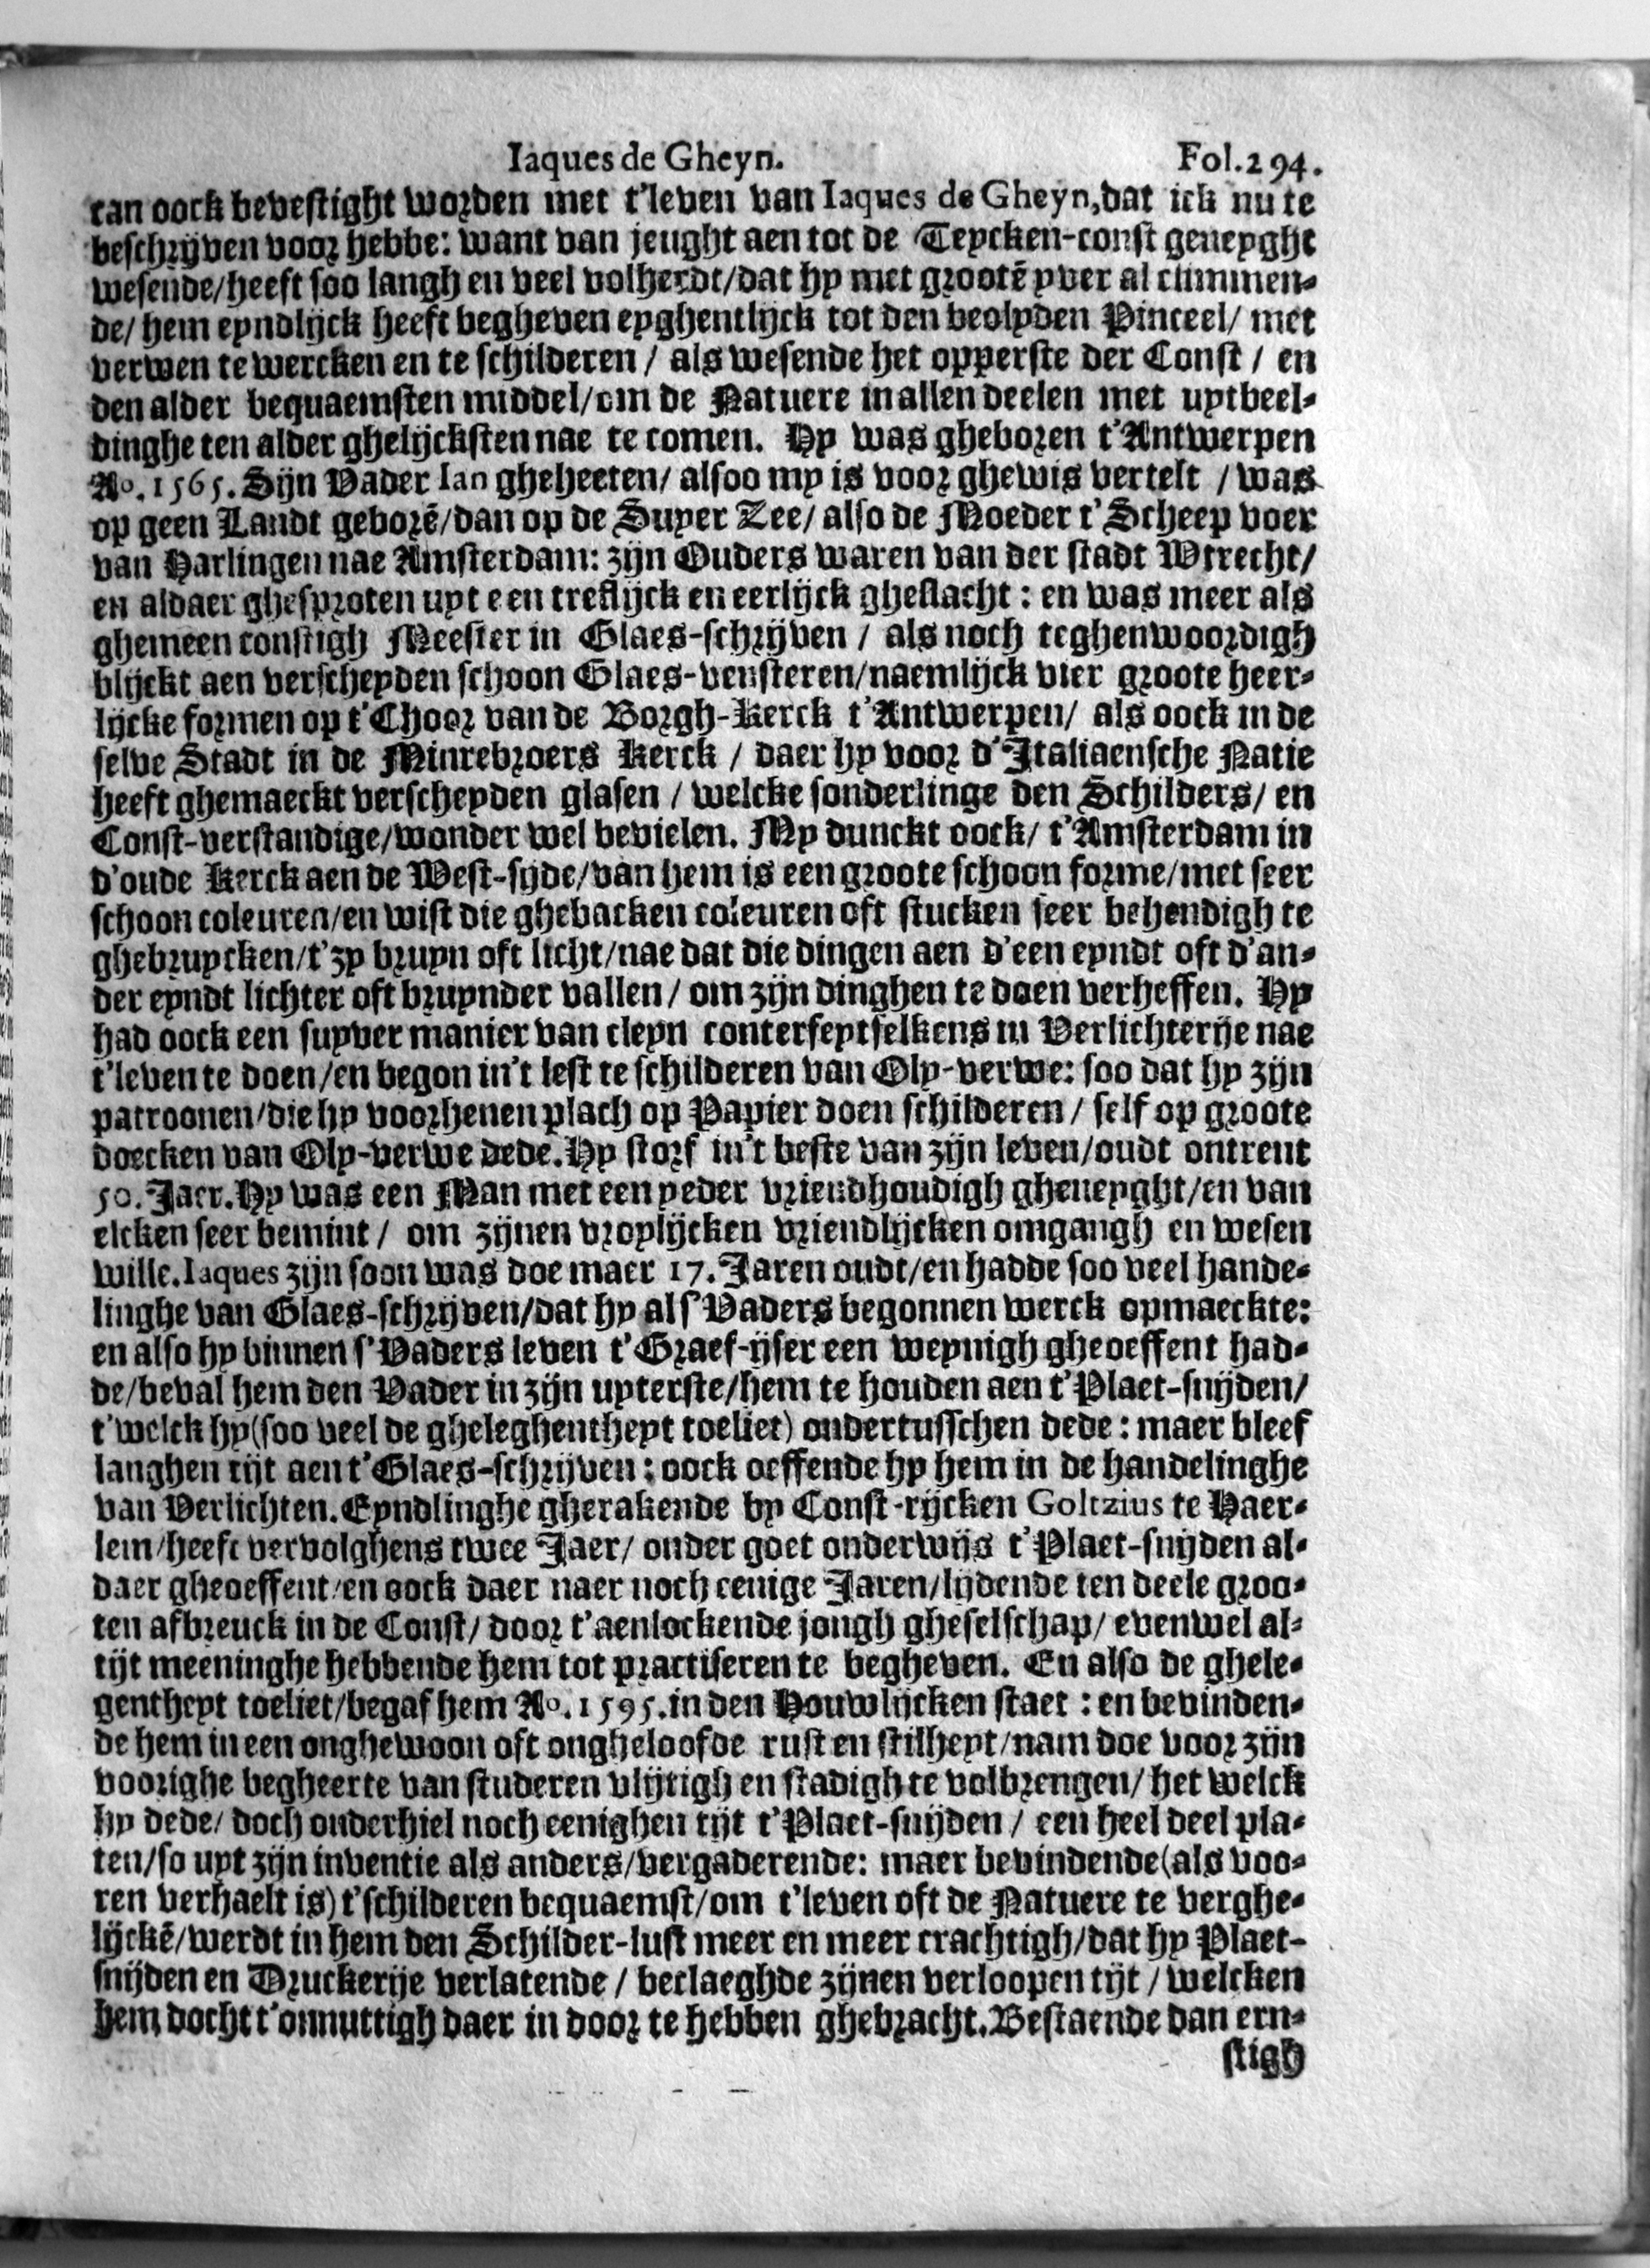 Iaques de Gheyn. Fol.294.
can oock bevestight worden met t'leven van Iaques de Gheyn,dat ick nu te
beschrijven voor hebbe: want van jeught aen tot de Teycken-const geneyght
wesende/heeft soo langh en veel volherdt/dat hy met grootẽ yver al climmen-
de/ hem eyndlijck heeft begheven eyghentlijck tot den beolyden Pinceel/ met
verwen te wercken en te schilderen / als wesende het opperste der Const / en
den alder bequaemsten middel/om de Natuere in allen deelen met uytbeel-
dinghe ten alder ghelijcksten nae te comen. Hy was gheboren t'Antwerpen
Ao. 1565. Sijn Vader Ian gheheeten/ alsoo my is voor ghewis vertelt / was
op geen Landt geborẽ/dan op de Suyer Zee/ also de Moeder t'Scheep voer
van Harlingen nae Amsterdam: zijn Ouders waren van der stadt Wtrecht/
en aldaer ghesproten uyt een treflijck en eerlijck gheslacht : en was meer als
ghemeen constigh Meester in Glaes-schrijven / als noch teghenwoordigh
blijckt aen verscheyden schoon Glaes-vensteren/naemlijck vier groote heer-
lijcke formen op t'Choor van de Borgh-kerck t'Antwerpen/ als oock in de
selve Stadt in de Minrebroers kerck / daer hy voor d'Italiaensche Natie
heeft ghemaeckt verscheyden glasen / welcke sonderlinge den Schilders/ en
Const-verstandige/wonder wel bevielen. My dunckt oock/ t'Amsterdam in
d'oude kerck aen de West-sijde/van hem is een groote schoon forme/met seer
schoon coleuren/en wist die ghebacken coleuren oft stucken seer behendigh te
ghebruycken/t'zy bruyn oft licht/nae dat die dingen aen d'een eyndt oft d'an-
der eyndt lichter oft bruynder vallen/ om zijn dinghen te doen verheffen. Hy
had oock een suyver manier van cleyn conterfeytselkens in Verlichterije nae
t'leven te doen/en begon in't lest te schilderen van Oly-verwe: soo dat hy zijn
patroonen/die hy voorhenen plach op Papier doen schilderen / self op groote
doecken van Oly-verwe dede. Hy storf in't beste van zijn leven/oudt ontrent
50. Jaer. Hy was een Man met een yeder vriendhoudigh gheneyght/en van
elcken seer bemint / om zijnen vroylijcken vriendlijcken omgangh en wesen
wille. Iaques zijn soon was doe maer 17. Jaren oudt/en hadde soo veel hande-
linghe van Glaes-schrijven/dat hy al s'Vaders begonnen werck opmaeckte:
en also hy binnen s'Vaders leven t'Graef-ijser een weynigh gheoeffent had-
de/beval hem den Vader in zijn uyterste/hem te houden aen t'Plaet-snijden/
t'welck hy(soo veel de gheleghentheyt toeliet) ondertusschen dede : maer bleef
langhen tijt aen t'Glaes-schrijven : oock oeffende hy hem in de handelinghe
van Verlichten. Eyndlinghe gherakende by Const-rijcken Goltzius te Haer-
lem/heeft vervolghens twee Jaer/ onder goet onderwijs t'Plaet-snijden al-
daer gheoeffent/en oock daer naer noch eenige Jaren/lijdende ten deele groo-
ten afbreuck in de Const/ door t'aenlockende jongh gheselschap/ evenwel al-
tijt meeninghe hebbende hem tot practiseren te begheven. En also de ghele-
gentheyt toeliet/begaf hem Ao. 1595. in den Houwlijcken staet : en bevinden-
de hem in een onghewoon oft ongheloofde rust en stilheyt/nam doe voor zijn
voorighe begheerte van studeren vlijtigh en stadigh te volbrengen/ het welck
hy dede/ doch onderhiel noch eenighen tijt t'Plaet-snijden / een heel deel pla-
ten/so uyt zijn inventie als anders/vergaderende: maer bevindende(als voo-
ren verhaelt is) t'schilderen bequaemst/om t'leven oft de Natuere te verghe-
lijckẽ/werdt in hem den Schilder-lust meer en meer crachtigh/dat hy Plaet-
snijden en Druckerije verlatende / beclaeghde zijnen verloopen tijt / welcken
hem docht t'onnuttigh daer in door te hebben ghebracht. Bestaende dan ern-
stigh